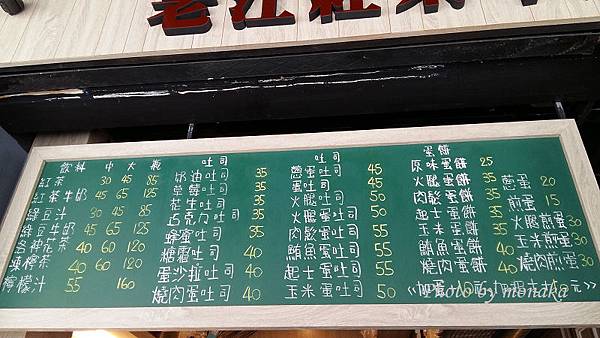 老江紅茶牛
飲料 中 大 瓶
紅茶 30 45 85
紅茶牛奶 45 65 125
綠豆汁 30 45 85
綠豆牛奶 45 65 125
洛神花茶 40 60 120
凍檸茶 40 60 120
檸檬汁 55 160
吐司
奶油吐司 35
草莓吐司 35
花生吐司 35
巧克力吐司 35
蜂蜜吐司 35
糖蛋吐司 40
蛋沙拉吐司 40
燒肉蛋吐司 40
吐司
蔥蛋吐司 45
蛋吐司 45
火腿吐司 50
火腿蛋吐司 50
肉鬆蛋吐司 55
鮪魚蛋吐司 55
起士蛋吐司 55
玉米蛋吐司 50
蛋餅
原味蛋餅 25
火腿蛋餅 35
肉鬆蛋餅 35
起士蛋餅 35
玉米蛋餅 35
鮪魚蛋餅 40
燒肉蛋餅 40
蔥蛋 20
煎蛋 15
火腿煎蛋 30
玉米煎蛋 30
燒肉煎蛋 30
Photo by monaka